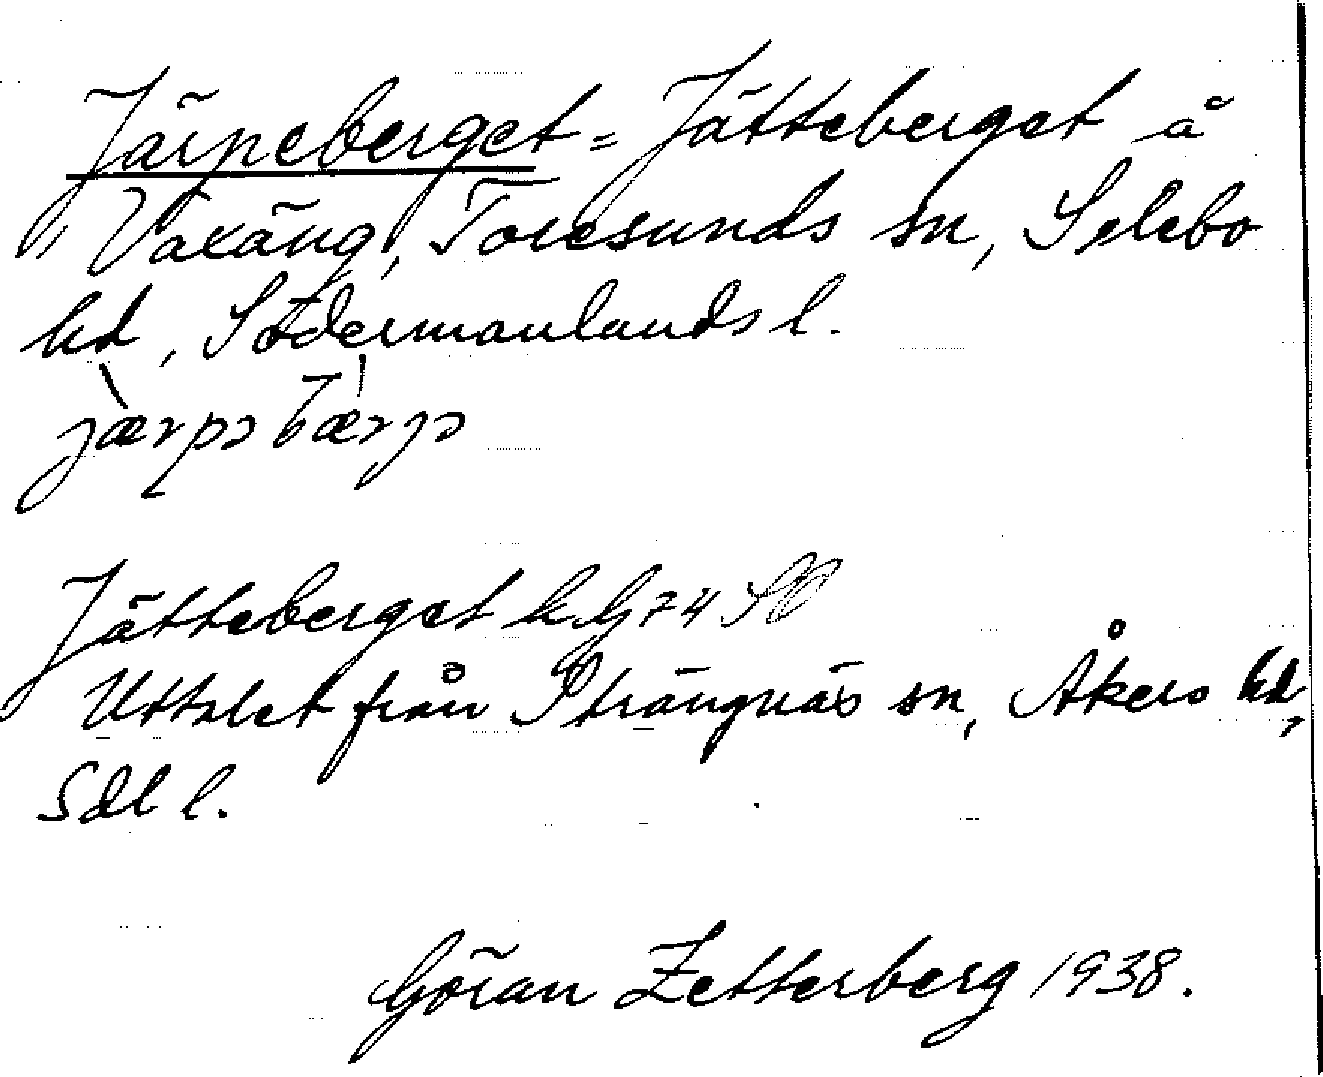 Järpeberget = Jätteberget å
Vaxäng, Toresunds sn, Selebo
hd, Södermanlands l.
jærpə bærjə
Jätteberget k. G 74 SV
Uttalet från Strängnäs sn, Åkers hd,
Sdl l.
Göran Zetterberg 1938.